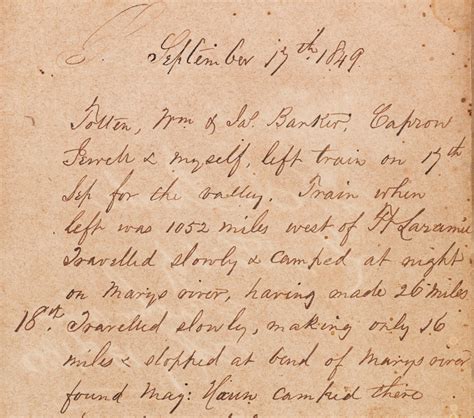 September 17th 1849
Totten, Wm & Jas. Banker, Capron
Jewell & myself, left train on 17th
Sep for the valley. Train when
left was 1052 miles west of Ft Laramie
Travelled slowly & camped at night
on Marys river, having made 26 miles
18th. Travelled slowly, making only 16
miles & stopped at bend of Marys river
found Maj: Horn camped there